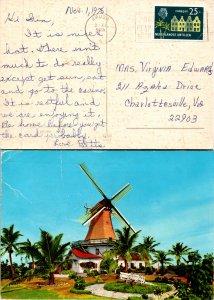 Nov. 1, 1976
Hi Dim,
It is nice &
hot. There isn't
much to do really
except get sun, eat
and go to the casino.
It is restful and
we are enjoying it.
Be home before you get
the card probably
Love Betts.
25 c
NEDERLANDSE ANTILLEN
Mrs. Virginia Edwards
211 Azalea Drive
Charlottesville, Va
22903